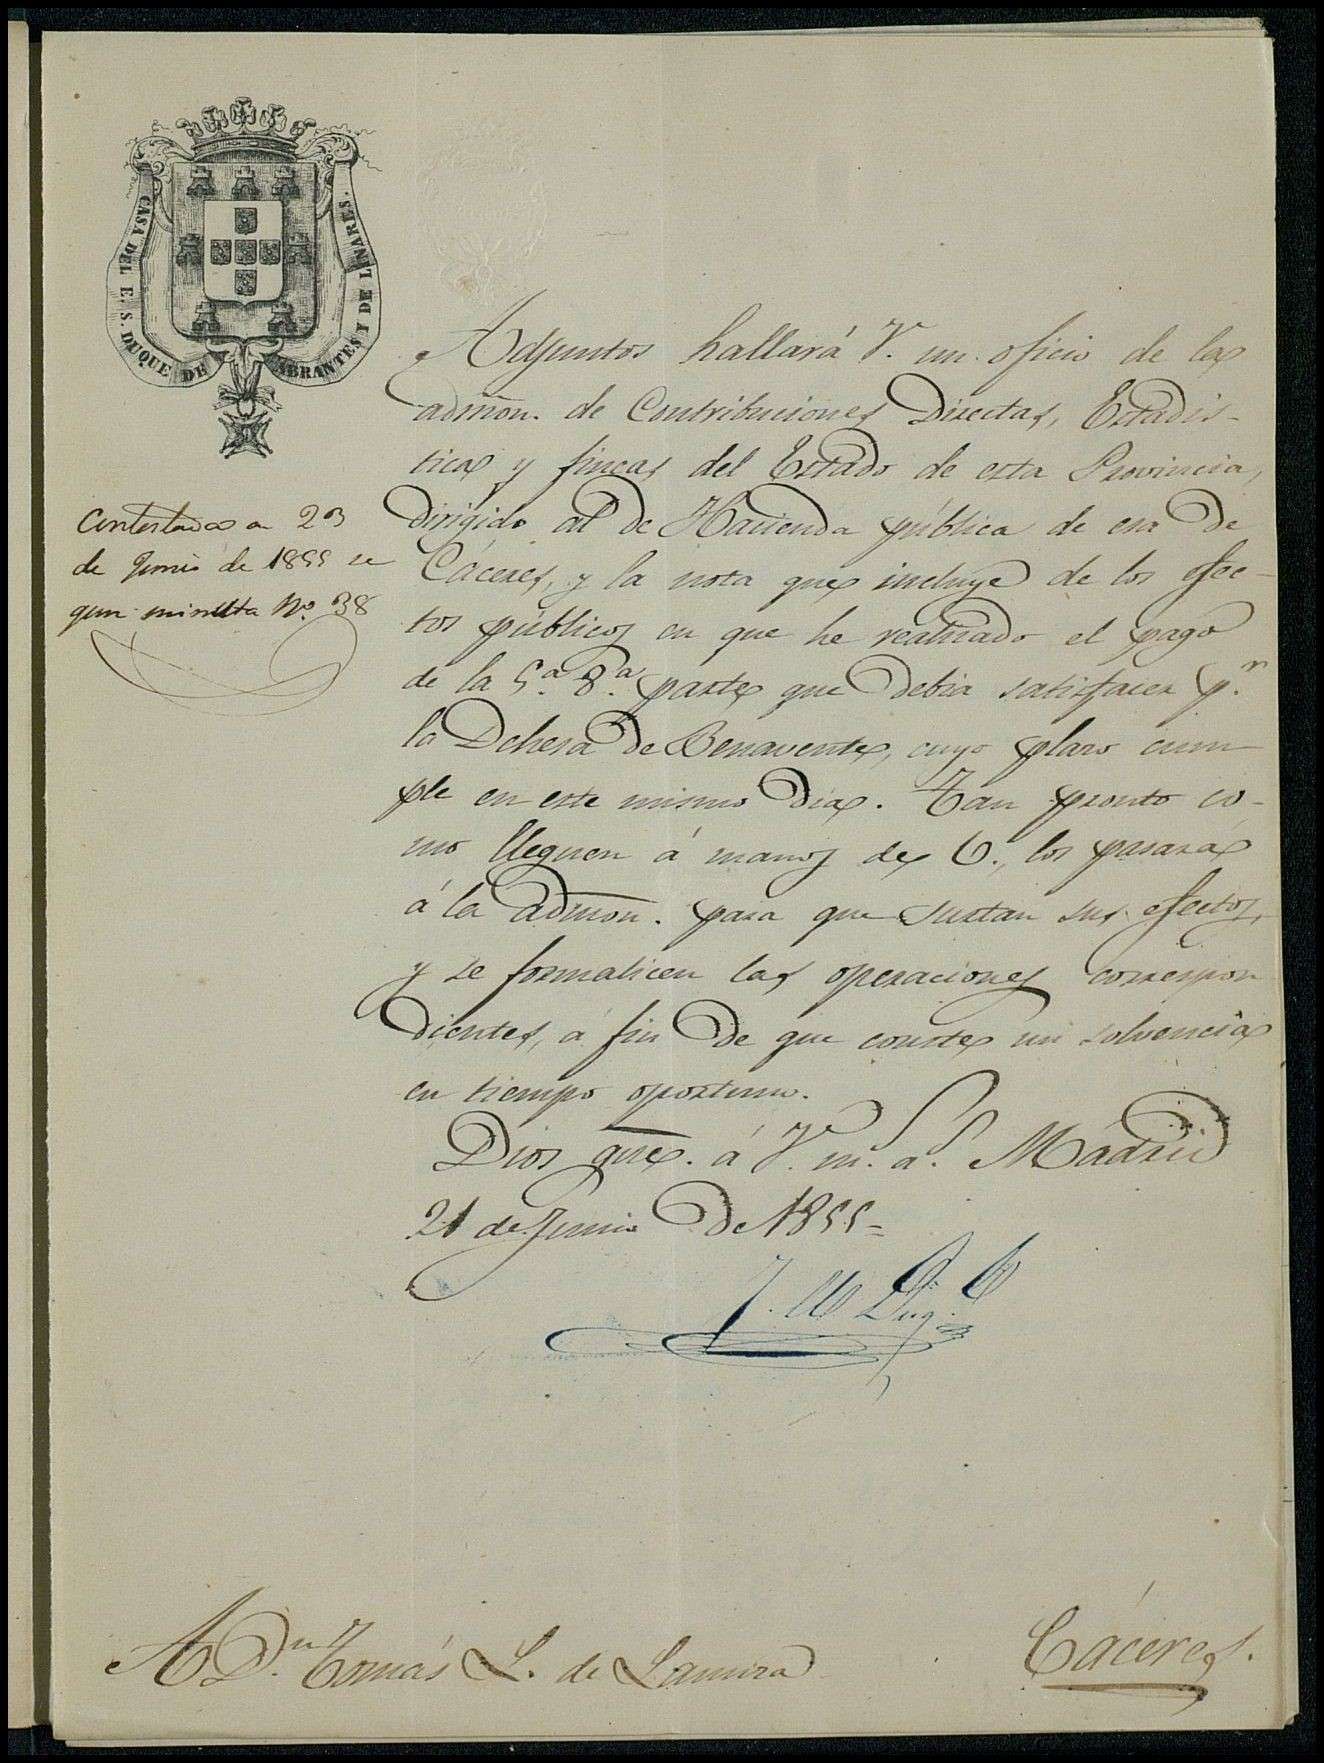 CASA DEL E. S. DUQUE DE ABRANTES Y DE LINARES.
Adjuntos hallará V. un oficio de la
admon. de Contribuciones Directas, Estadis-
tica y fincas del Estado de esta Provincia,
dirigido al de Hacienda pública de esa de
Cáceres, y la nota que incluye de los efec-
tos públicos en que he realizado el pago
de la 5.ª 8.ª parte que debia satisfacer p.r
la Dehesa de Benavente, cuyo plazo cum-
ple en este mismo dia. Tan pronto co-
mo lleguen á manos de V., los pasará
á la admon. para que surtan sus efectos,
y se formalicen las operaciones correspon
dientes, á fin de que conste mi solvencia
en tiempo oportuno.
Dios gue. á V. m. a. Madrid
21 de Junio de 1855=
Contestada en 23
de Junio de 1855 se
gun minuta No. 38
A D.n Tomás L. de
Cáceres.